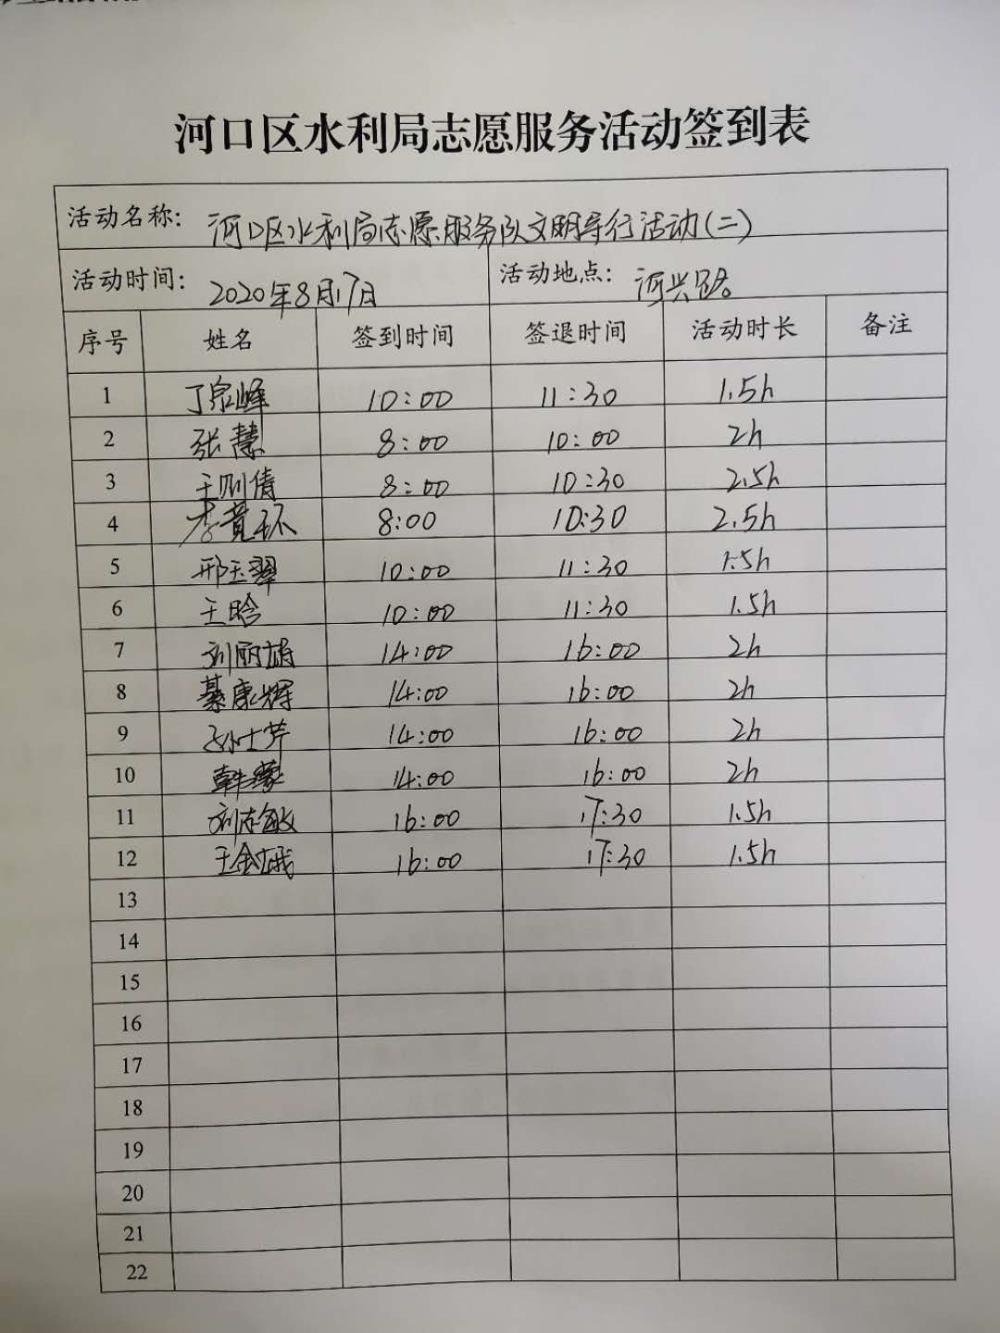 河口区水利局志愿服务活动签到表
活动名称: 河口区水利局志愿服务队文明导行活动(二)
活动时间: 2020年8月17日 活动地点: 河兴路
序号 姓名 签到时间 签退时间 活动时长 备注
1 丁泉峰 10:00 11:30 1.5h
2 张慧 8:00 10:00 2h
3 王刚倩 8:00 10:30 2.5h
4 李竟环 8:00 10:30 2.5h
5 邢玉翠 10:00 11:30 1.5h
6 王晗 10:00 11:30 1.5h
7 刘丽婧 14:00 16:00 2h
8 綦康辉 14:00 16:00 2h
9 孙士芹 14:00 16:00 2h
10 韩蒙 14:00 16:00 2h
11 刘志敏 16:00 17:30 1.5h
12 王金娥 16:00 17:30 1.5h
13
14
15
16
17
18
19
20
21
22